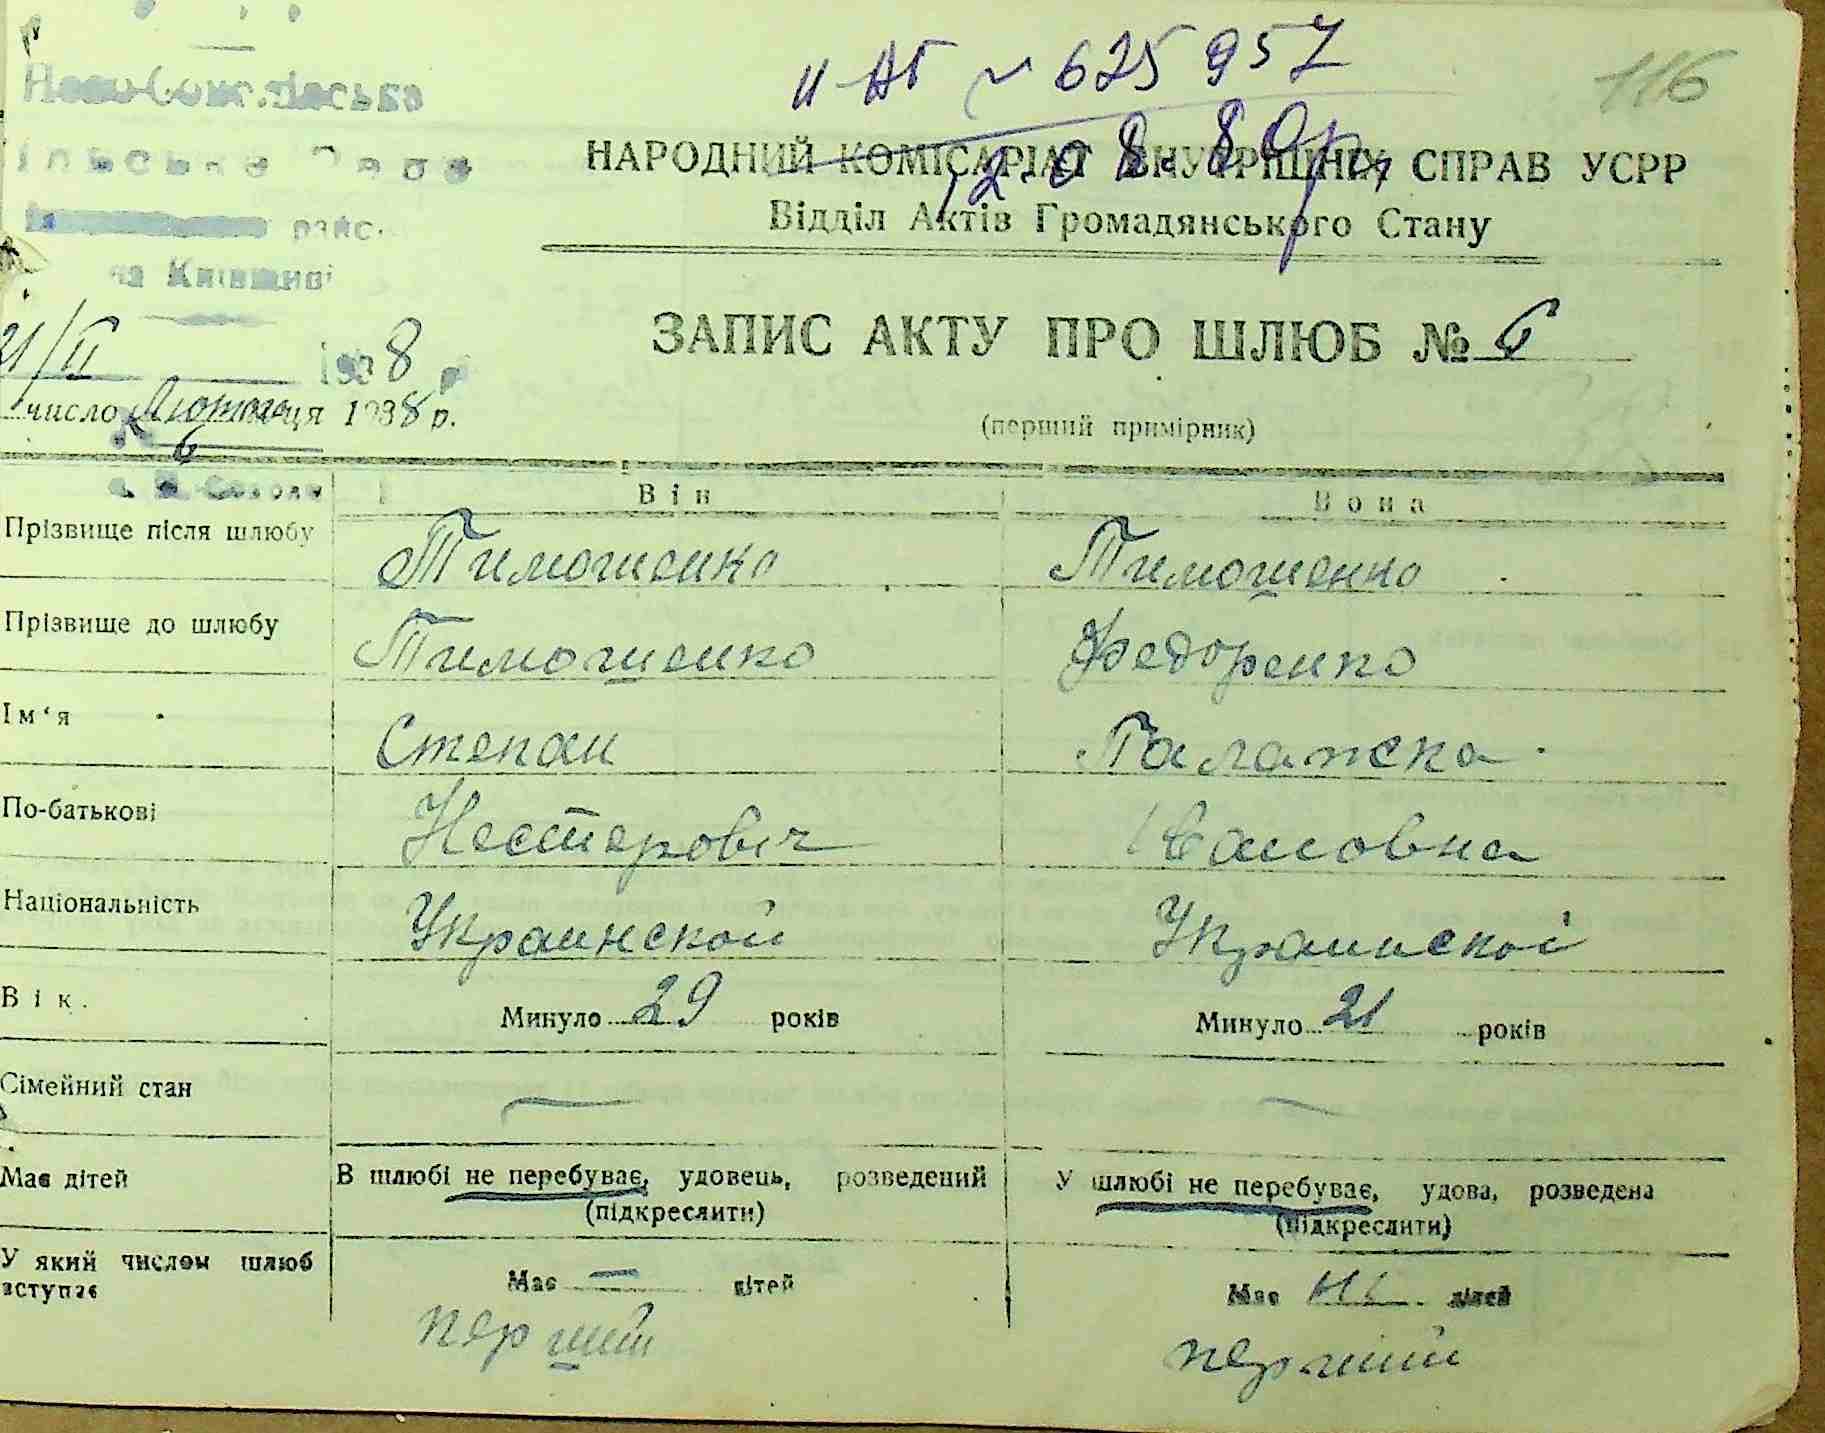 II-АГ № 625957
116
12.08.80р.
НАРОДНИЙ КОМІСАРІАТ ВНУТРІШНІХ СПРАВ УСРР
Відділ Актів Громадянського Стану
райс.
на Київщині
21/II 1938 р.
ЗАПИС АКТУ ПРО ШЛЮБ № 6
число Лютого ця 1938 р.
6
(перший примірник)
Він Вона
Прізвище після шлюбу Тимошенко Тимошенко
Прізвище до шлюбу Тимошенко Федоренко
Ім‘я Степан Галажка
По-батькові Нестерович Ивановна
Національність Украинской Украинскої
Вік. Минуло 29 років Минуло 21 років
Сімейний стан — —
Має дітей В шлюбі не перебуває, удовець, розведений У шлюбі не перебуває, удова, розведена
(підкреслити) (підкреслити)
У який числом шлюб вступає Має — дітей Має Ні дітей
перший перший